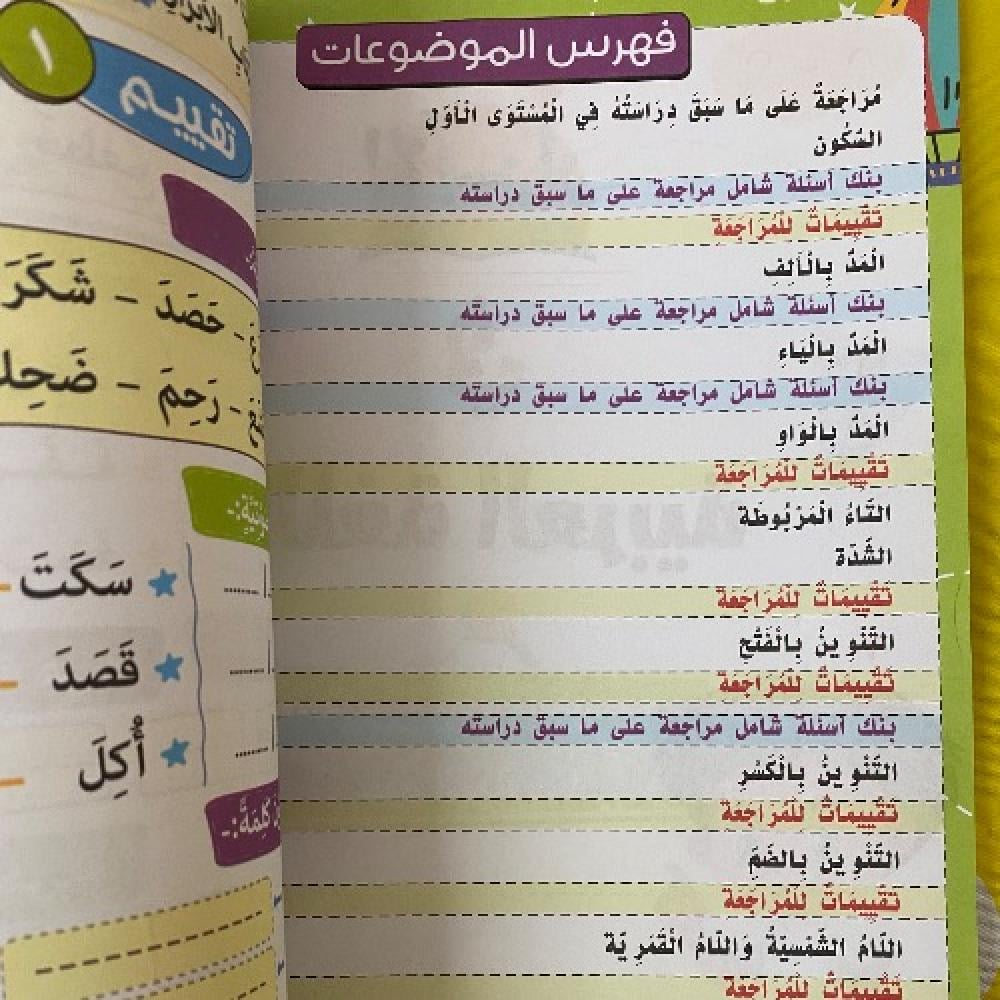 فهرس الموضوعات
مُرَاجَعَةٌ عَلَى مَا سَبَقَ دِرَاسَتُهُ فِي الْمُسْتَوَى الْأَوَّلِ
السُّكُون
بنك أسئلة شامل مراجعة على ما سبق دراسته
تَقْيِيمَاتٌ لِلْمُرَاجَعَةِ
الْمَدُّ بِالْأَلِفِ
بنك أسئلة شامل مراجعة على ما سبق دراسته
الْمَدُّ بِالْيَاءِ
بنك أسئلة شامل مراجعة على ما سبق دراسته
الْمَدُّ بِالْوَاوِ
تَقْيِيمَاتٌ لِلْمُرَاجَعَةِ
التَّاءُ الْمَرْبُوطَة
الشَّدَّة
تَقْيِيمَاتٌ لِلْمُرَاجَعَةِ
التَّنْوِينُ بِالْفَتْحِ
تَقْيِيمَاتٌ لِلْمُرَاجَعَةِ
بنك أسئلة شامل مراجعة على ما سبق دراسته
التَّنْوِينُ بِالْكَسْرِ
تَقْيِيمَاتٌ لِلْمُرَاجَعَةِ
التَّنْوِينُ بِالضَّمِّ
تَقْيِيمَاتٌ لِلْمُرَاجَعَةِ
اللَّامُ الشَّمْسِيَّةُ وَاللَّامُ الْقَمَرِيَّة
تَقْيِيمَاتٌ لِلْمُرَاجَعَةِ
١
تقييم
حَصَدَ - شَكَرَ
رَحِمَ -
سَكَتَ
قَصَدَ
أُكِلَ
كلمة:-